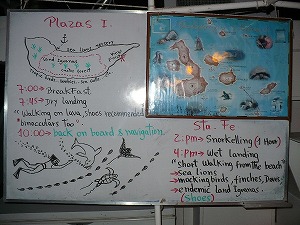 Plazas I.
sea lions nursery
Land Iguanas
cactus forest
7:00→ BreakFast
7:45→ Dry landing
"walking on lava, shoes recommended
"binoculars too".
10:00→ back on board & navigation.
Sta. Fe
2:pm→ Snorkelling (1 Hour)
4:pm→ Wet landing
"short walking from the beach"
→ sea lions
→ mockingbirds, finches, Doves,
→ endemic land Iguanas.
(shoes)